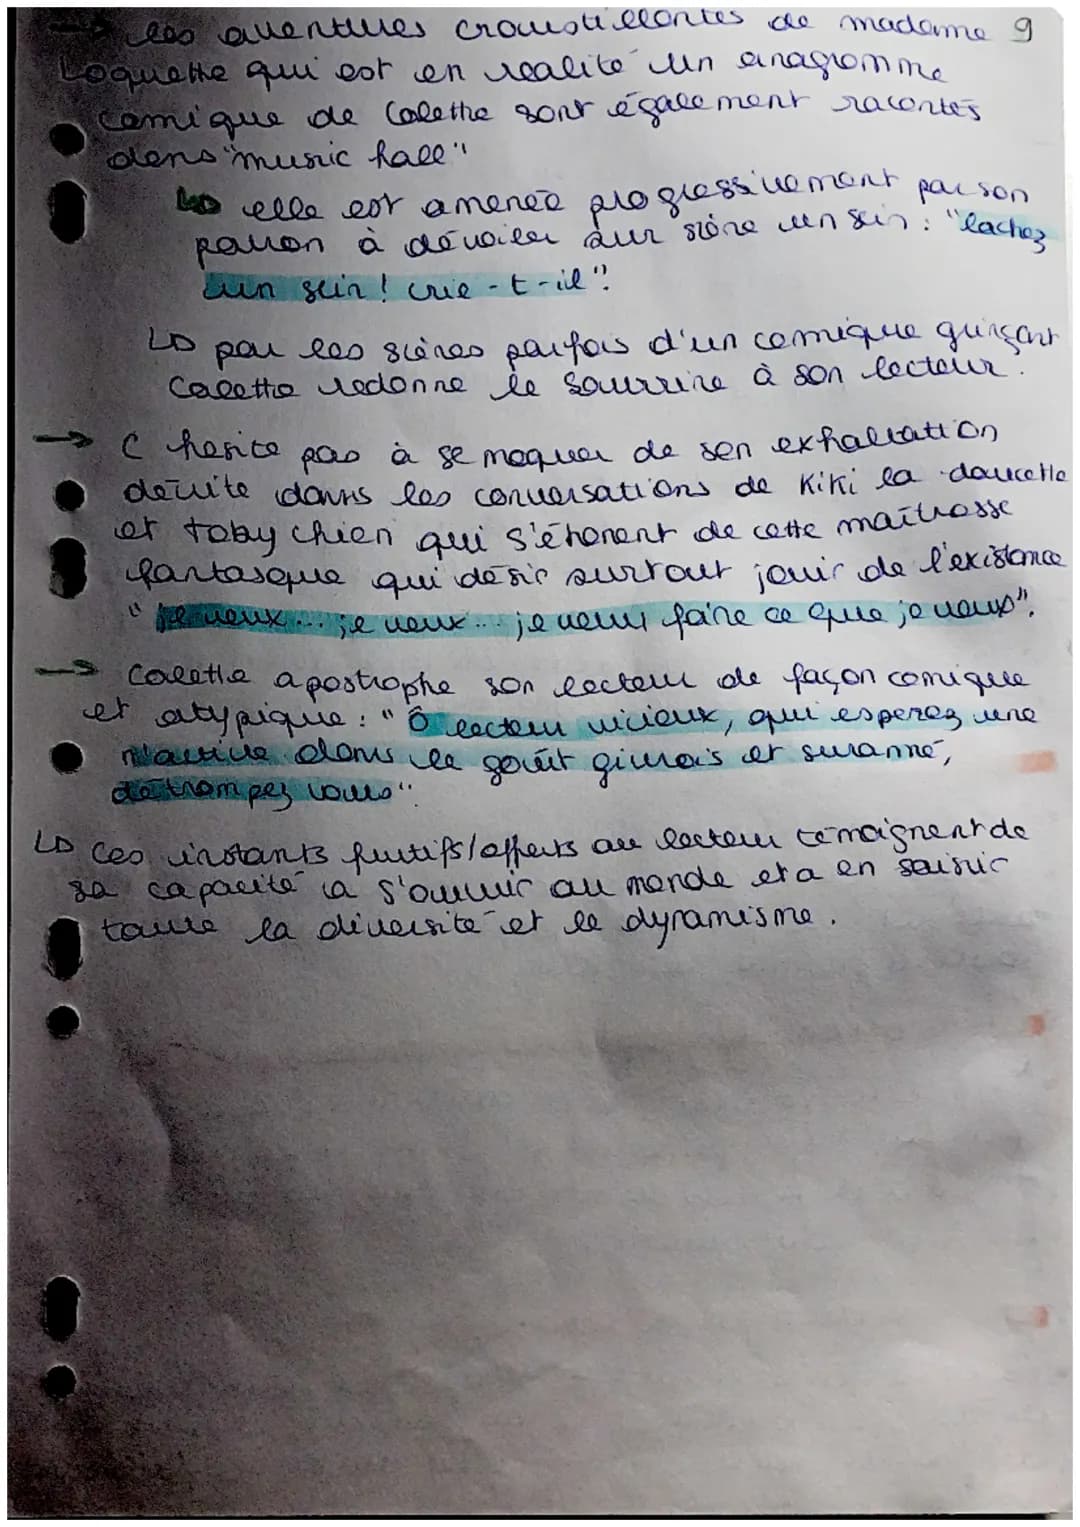 → les aventures croustillantes de madame 9
Loquette qui est en realité un anagramme
comique de Colette sont également racontés
dans "music hall"
↳ elle est amenée progressivement par son
patron à dévoiler sur scène un sein : "lachez
un sein ! crie-t-il".
↳ par les scènes parfois d'un comique grinçant
Colette redonne le sourrire à son lecteur.
→ C hesite pas à se moquer de son exhaltation
décrite dans les conversations de Kiki la doucette
et toby chien qui s'étonent de cette maîtresse
fantasque qui désir surtout jouir de l'existence
"je veux... je veux... je veux faire ce que je veux".
→ Colette apostrophe son lecteur de façon comique
et atypique : "Ô lecteur vicieux, qui esperez une
dans le goût grivois et suranné,
détrompez vous".
↳ Ces instants furtifs/offerts au lecteur témoignent de
sa capacité a s'ouvrir au monde et a en saisir
toute la diversité et le dynamisme.